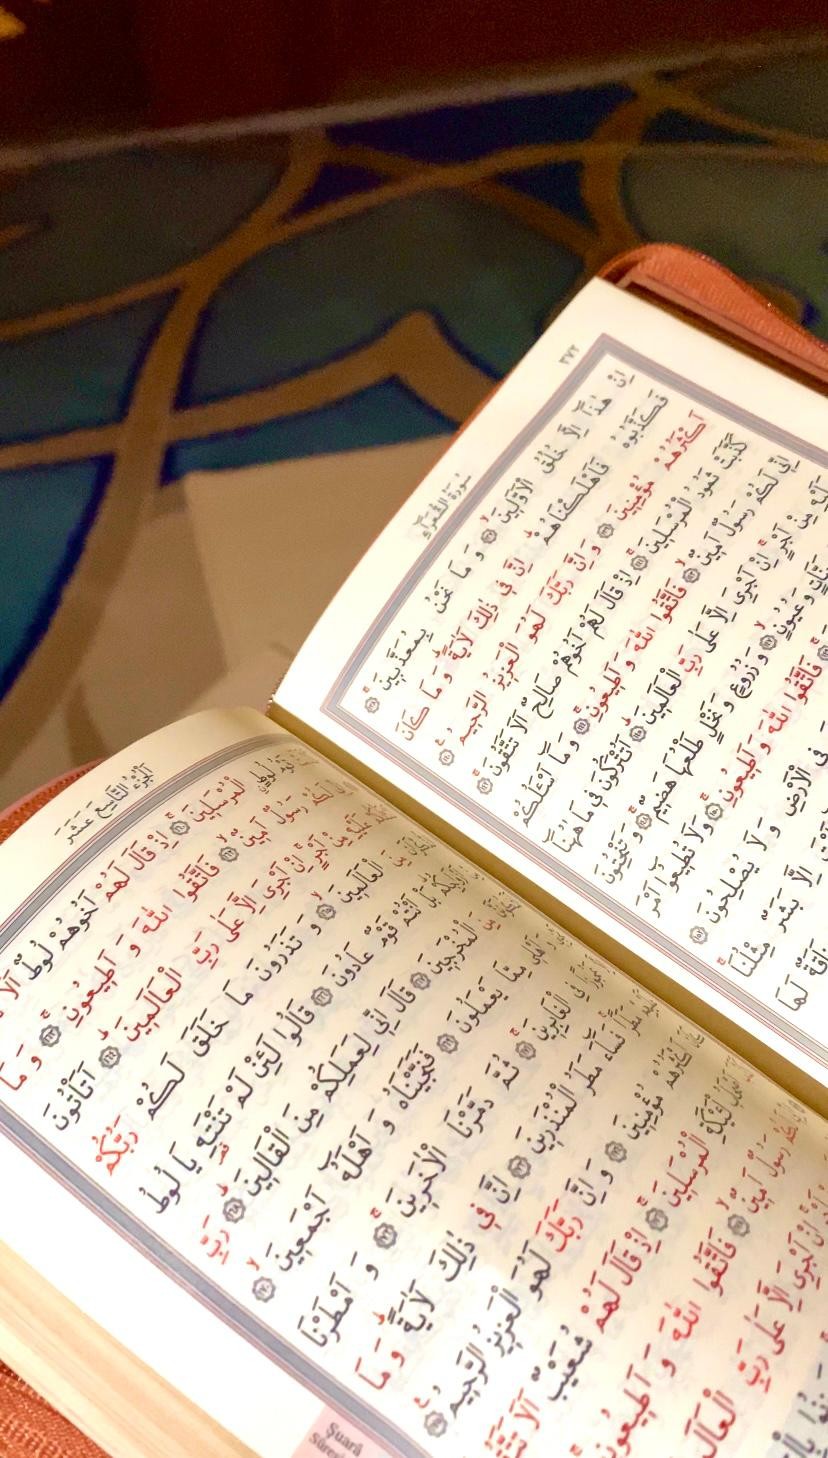 ٣٧٢
سُورَةُ الشُّعَرَاءِ
اِنْ هٰذَٓا اِلَّا خُلُقُ الْاَوَّلٖينَۙ ١٣٧ وَمَا نَحْنُ بِمُعَذَّبٖينَۚ ١٣٨
فَكَذَّبُوهُ فَاَهْلَكْنَاهُمْۜ اِنَّ فٖي ذٰلِكَ لَاٰيَةًۜ وَمَا كَانَ
اَكْثَرُهُمْ مُؤْمِنٖينَ ١٣٩ وَاِنَّ رَبَّكَ لَهُوَ الْعَزٖيزُ الرَّحٖيمُ ١٤٠
كَذَّبَتْ ثَمُودُ الْمُرْسَلٖينَۚ ١٤١ اِذْ قَالَ لَهُمْ اَخُوهُمْ صَالِحٌ اَلَا تَتَّقُونَۚ ١٤٢
اِنّٖي لَكُمْ رَسُولٌ اَمٖينٌۙ ١٤٣ فَاتَّقُوا اللّٰهَ وَاَطٖيعُونِۚ ١٤٤ وَمَٓا اَسْـَٔلُكُمْ
مِنْ اَجْرٍۚ اِنْ اَجْرِيَ اِلَّا عَلٰى رَبِّ الْعَالَمٖينَۜ ١٤٥ اَتُتْرَكُونَ فٖي مَا هٰهُنَٓا
وَعُيُونٍۙ ١٤٧ وَزُرُوعٍ وَنَخْلٍ طَلْعُهَا هَضٖيمٌۚ ١٤٨ وَتَنْحِتُونَ
فَاتَّقُوا اللّٰهَ وَاَطٖيعُونِۚ ١٥٠ وَلَا تُطٖيعُٓوا اَمْرَ
فِي الْاَرْضِ وَلَا يُصْلِحُونَ ١٥٢
اِلَّا بَشَرٌ مِثْلُنَاۚ
لَهَا
اَلْجُزْءُ التَّاسِعَ عَشَرَ
لُوطٍ الْمُرْسَلٖينَۚ ١٦٠ اِذْ قَالَ لَهُمْ اَخُوهُمْ لُوطٌ اَلَا
لَكُمْ رَسُولٌ اَمٖينٌۙ ١٦٢ فَاتَّقُوا اللّٰهَ وَاَطٖيعُونِۚ ١٦٣ وَمَٓا
عَلَيْهِ مِنْ اَجْرٍۚ اِنْ اَجْرِيَ اِلَّا عَلٰى رَبِّ الْعَالَمٖينَۜ ١٦٤ اَتَأْتُونَ
مِنَ الْعَالَمٖينَۙ ١٦٥ وَتَذَرُونَ مَا خَلَقَ لَكُمْ رَبُّكُمْ
بَلْ اَنْتُمْ قَوْمٌ عَادُونَ ١٦٦ قَالُوا لَئِنْ لَمْ تَنْتَهِ يَا لُوطُ
مِنَ الْمُخْرَجٖينَ ١٦٧ قَالَ اِنّٖي لِعَمَلِكُمْ مِنَ الْقَالٖينَۜ ١٦٨ رَبِّ
مِمَّا يَعْمَلُونَ ١٦٩ فَنَجَّيْنَاهُ وَاَهْلَهُٓ اَجْمَعٖينَۙ ١٧٠
فِي الْغَابِرٖينَۚ ١٧١ ثُمَّ دَمَّرْنَا الْاٰخَرٖينَۚ ١٧٢ وَاَمْطَرْنَا
مَطَرًاۚ فَسَٓاءَ مَطَرُ الْمُنْذَرٖينَ ١٧٣ اِنَّ فٖي ذٰلِكَ لَاٰيَةًۜ وَمَا
اَكْثَرُهُمْ مُؤْمِنٖينَ ١٧٤ وَاِنَّ رَبَّكَ لَهُوَ الْعَزٖيزُ الرَّحٖيمُ ١٧٥
الْمُرْسَلٖينَۚ ١٧٦ اِذْ قَالَ لَهُمْ شُعَيْبٌ اَلَا تَتَّقُونَ
لَكُمْ رَسُولٌ اَمٖينٌۙ ١٧٨ فَاتَّقُوا اللّٰهَ وَاَطٖيعُونِ
اِنْ اَجْرِيَ اِلَّا عَلٰى رَبِّ
Şuarâ